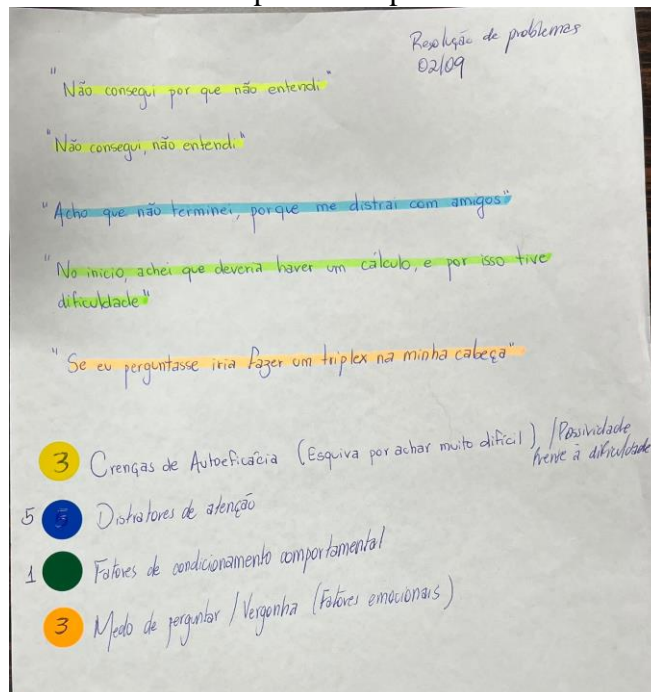 Resolução de problemas
02/09
"Não consegui por que não entendi"
"Não consegui, não entendi"
"Acho que não terminei, porque me distrai com amigos"
"No inicio, achei que deveria haver um cálculo, e por isso tive
dificuldade"
"Se eu perguntasse iria fazer um triplex na minha cabeça"
3 Crenças de Autoeficácia (Esquiva por achar muito difícil) / Passividade
frente à dificuldade
5 5 Distratores de atenção
1 Fatores de condicionamento comportamental
3 Medo de perguntar / Vergonha (Fatores emocionais)